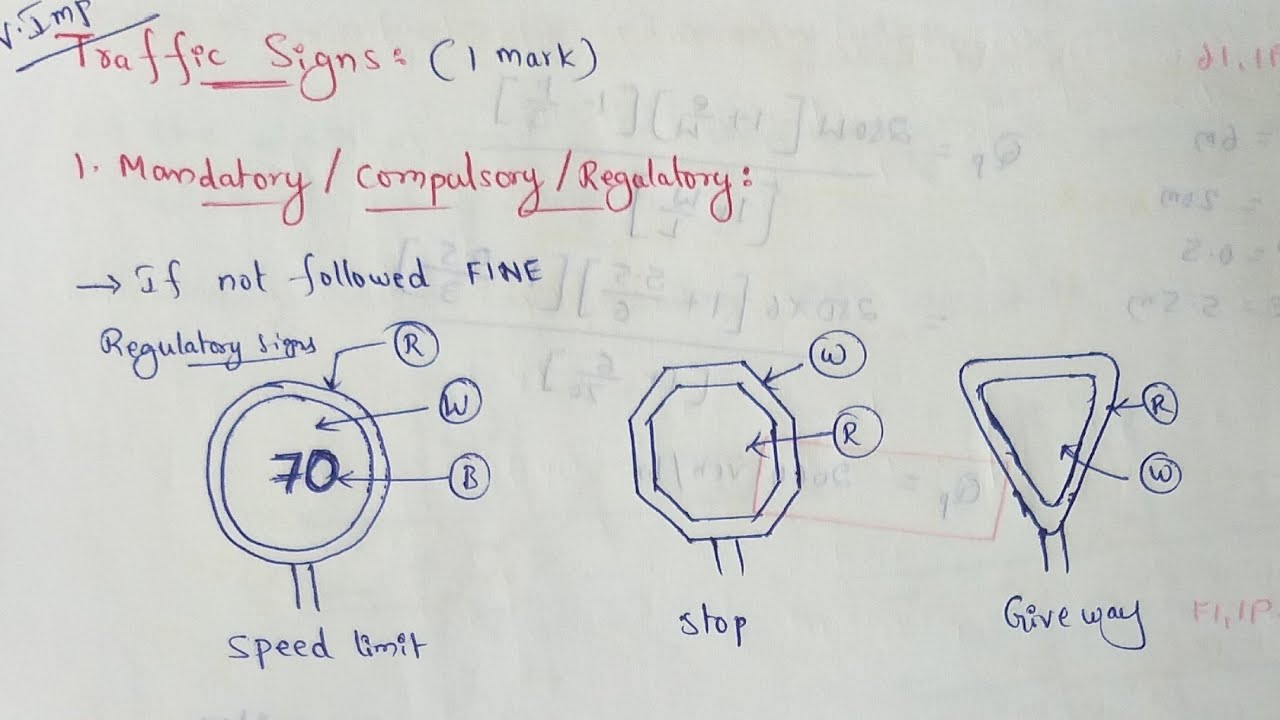 V.Imp
Traffic Signs: (1 mark)
1. Mandatory / Compulsory / Regalatory:
→ If not followed FINE
Regulatory signs
R
W
70
B
W
R
R
W
Speed limit
Stop
Give way